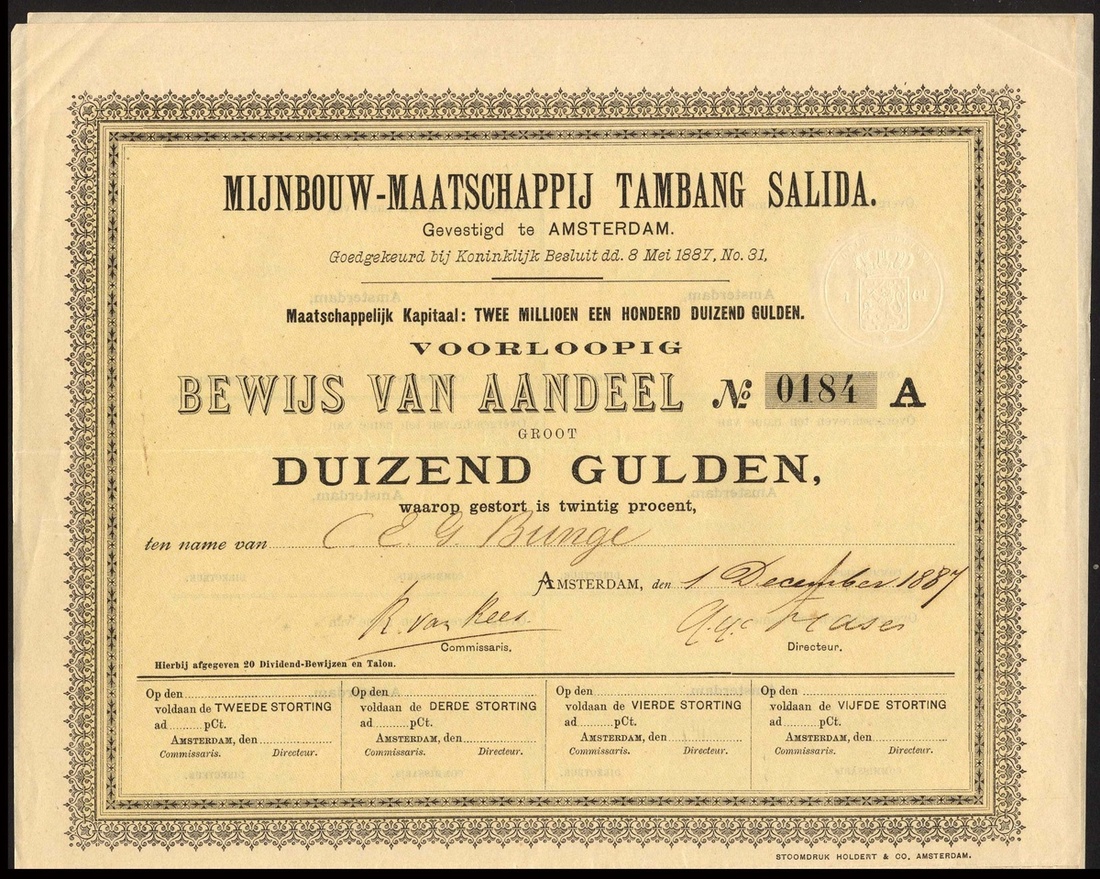 MIJNBOUW-MAATSCHAPPIJ TAMBANG SALIDA.
Gevestigd te AMSTERDAM.
Goedgekeurd bij Koninklijk Besluit dd. 8 Mei 1887, No. 31,
Maatschappelijk Kapitaal: TWEE MILLIOEN EEN HONDERD DUIZEND GULDEN.
VOORLOOPIG
BEWIJS VAN AANDEEL No 0184 A
GROOT
DUIZEND GULDEN,
waarop gestort is twintig procent,
ten name van C E. G. Bunge
AMSTERDAM, den 1 December 1887
R. van Rees
Commissaris. Directeur.
Hierbij afgegeven 20 Dividend-Bewijzen en Talon.
Op den
voldaan de TWEEDE STORTING
ad pCt.
AMSTERDAM, den
Commissaris. Directeur.
Op den
voldaan de DERDE STORTING
ad pCt.
AMSTERDAM, den
Commissaris. Directeur.
Op den
voldaan de VIERDE STORTING
ad pCt.
AMSTERDAM, den
Commissaris. Directeur.
Op den
voldaan de VIJFDE STORTING
ad pCt.
AMSTERDAM, den
Commissaris. Directeur.
STOOMDRUK HOLDERT & CO. AMSTERDAM.